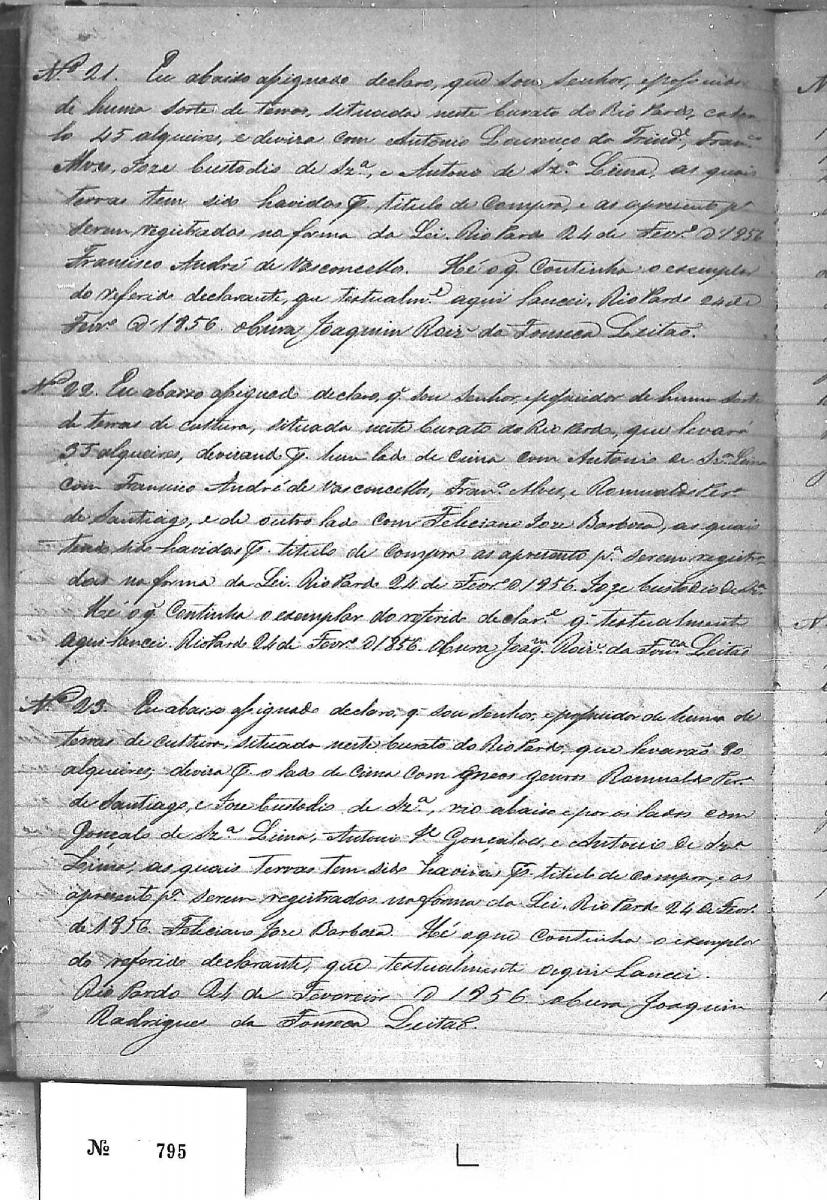 Nº 21. Eu abaixo assignado declaro, que sou senhor, e possuidor
de huma sorte de terras, situada neste Curato do Rio Pardo,
45 alqueires, e devira com Antonio Lourenço da Trind.e, Fran.co
Alves, Joze Custodio de Sz.ª, e Antonio de Sz.ª Lima, as quais
terras tem sido havidas p. titulo de Compra, e as apresento p.ª
serem registradas na forma da Lei. Rio Pardo 24 de Fevr.º D 1856
Francisco André de Vasconcellos. Hé o q. Continha o exemplar
do referido declarante, que textualm.e aqui lancei, Rio Pardo 24 de
Fevr.º D 1856 o Cura Joaquim Roiz' da Fonseca Leitaõ.
Nº 22. Eu abaixo assignado declaro, q. sou Senhor, e possuidor de huma sorte
de terras de cultura, situada neste Curato do Rio Pardo, que levará
55 alqueires, devirando p. hum lado de cima com Antonio de Sz.ª Lima
com Francisco André de Vasconcellos, Fran.co Alves, e Romualdo Per.ª
de Santiago, e de outro lado com Feliciano Joze Barboza, as quais
tendo sido havidas p. titulo de Compra as apresento p.ª serem registra
das na forma da Lei. Rio Pardo 24 de Fevr.º D 1856. Joze Custodio de Sz.ª
Hé o q. Continha o exemplar do referido declar.e q. textualmente
aqui lancei. Rio Pardo 24 de Fevr.º D 1856. o Cura Joaq.m Roiz' da Fon.ca Leitaõ
Nº 23. Eu abaixo assignado declaro, q. sou senhor, e possuidor de huma de
terras de cultura, situada neste Curato do Rio Pardo, que levaraõ 80
alqueires, devira p. o lado de cima com Romualdo Per.ª
de Santiago, e Joze Custodio de Sz.ª, rio abaixo e por os lados com
Gonçalo de Sz.ª Lima, Antonio Gonçalves, e Antonio de Sz.ª
Lima, as quais terras tem sido havida p. titulo de compra, e as
apresento p.ª serem registrados na forma da Lei. Rio Pardo 24 de Fevr.º
de 1856. Feliciano Joze Barboza Hé o que Continha o exemplar
do referido declarante, que textualmente aqui Lancei.
Rio Pardo 24 de Fevereiro D 1856 o Cura Joaquim
Rodrigues da Fonseca Leitaõ.
Nº 795